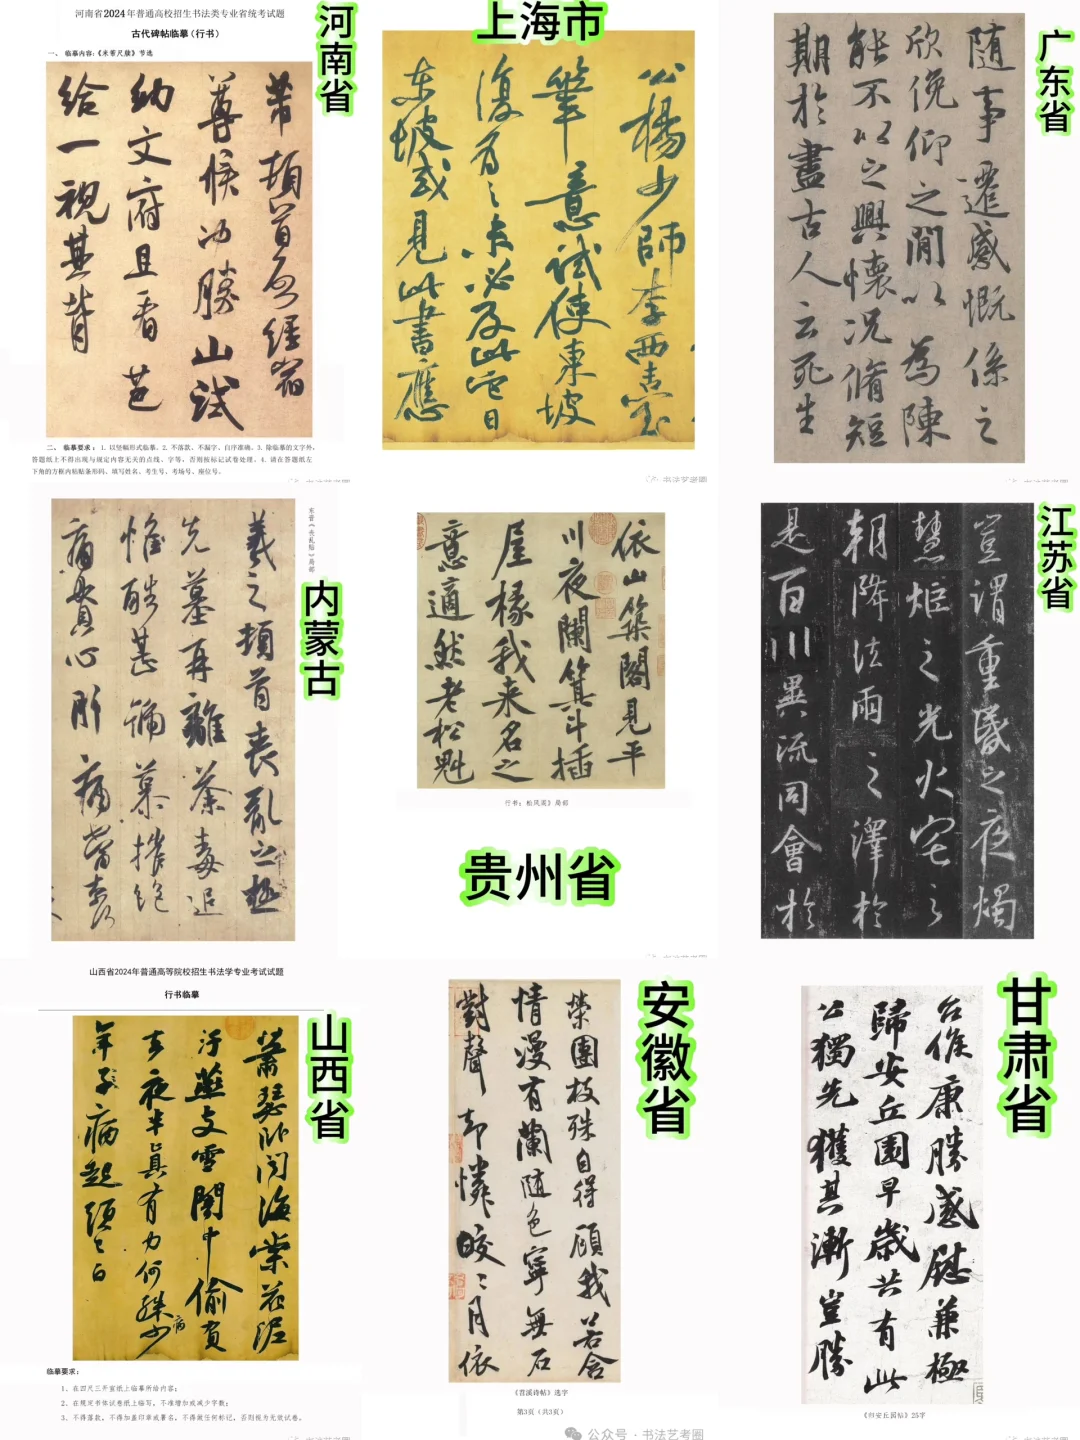 河南省2024年普通高校招生书法类专业省统考试题
古代碑帖临摹（行书）
一、 临摹内容：《米芾尺牍》节选
河南省
芾顿首启经宿
尊候冲胜山试
纳文府且看芭
给一视其背
二、 临摹要求：1. 以竖幅形式临摹。2. 不落款、不漏字、白序准确。3. 除临摹的文字外，
答题纸上不得出现与规定内容无关的点线、字等，否则按标记试卷处理。4. 请在答题纸左
下角的方框内粘贴条形码、填写姓名、考生号、考场号、座位号。
上海市
公杨少師李西臺
筆意試使東坡
復為之未必及此它日
东坡或見此書應
书法艺考圈
广东省
随事遷感慨係之
欣俛仰之閒以為陳
能不以之興懷况脩短
期於盡古人云死生
内蒙古
東晋《丧乱帖》局部
羲之頓首喪亂之極
先墓再離荼毒追
惟酷甚號慕摧絶
痛貫心肝痛當奈何
贵州省
依山築閣見平
川夜闌箕斗插
屋椽我来名之
意適然老松魁
行书：松风阁》局部
江苏省
豈謂重昏之夜燭
慧炬之光火宅之
朝降法雨之澤於
是百川異流同會於
山西省2024年普通高等院校招生书法学专业考试试题
行书临摹
山西省
蕭瑟卧闻海棠花泥
汙燕支雪闇中偷負
去夜半真有力何殊少
年子病起頭已白
病
临摹要求：
1、在四尺三开宣纸上临摹所给内容；
2、在规定书体试卷纸上临写，不准增加或减少字数；
3、不得落款，不得加盖印章或署名，不得做任何标记，否则视为无效试卷。
安徽省
葉團枝殊自得顾我若含
情漫有蘭随色寧無石
對聲却憐皎〻月依
《苕溪诗帖》选字
第3页（共3页）
公众号 · 书法艺考圈
甘肃省
台候康勝感慰兼極
歸安丘園早歲共有此
公獨先獲其漸豈勝
《归安丘园帖》25字